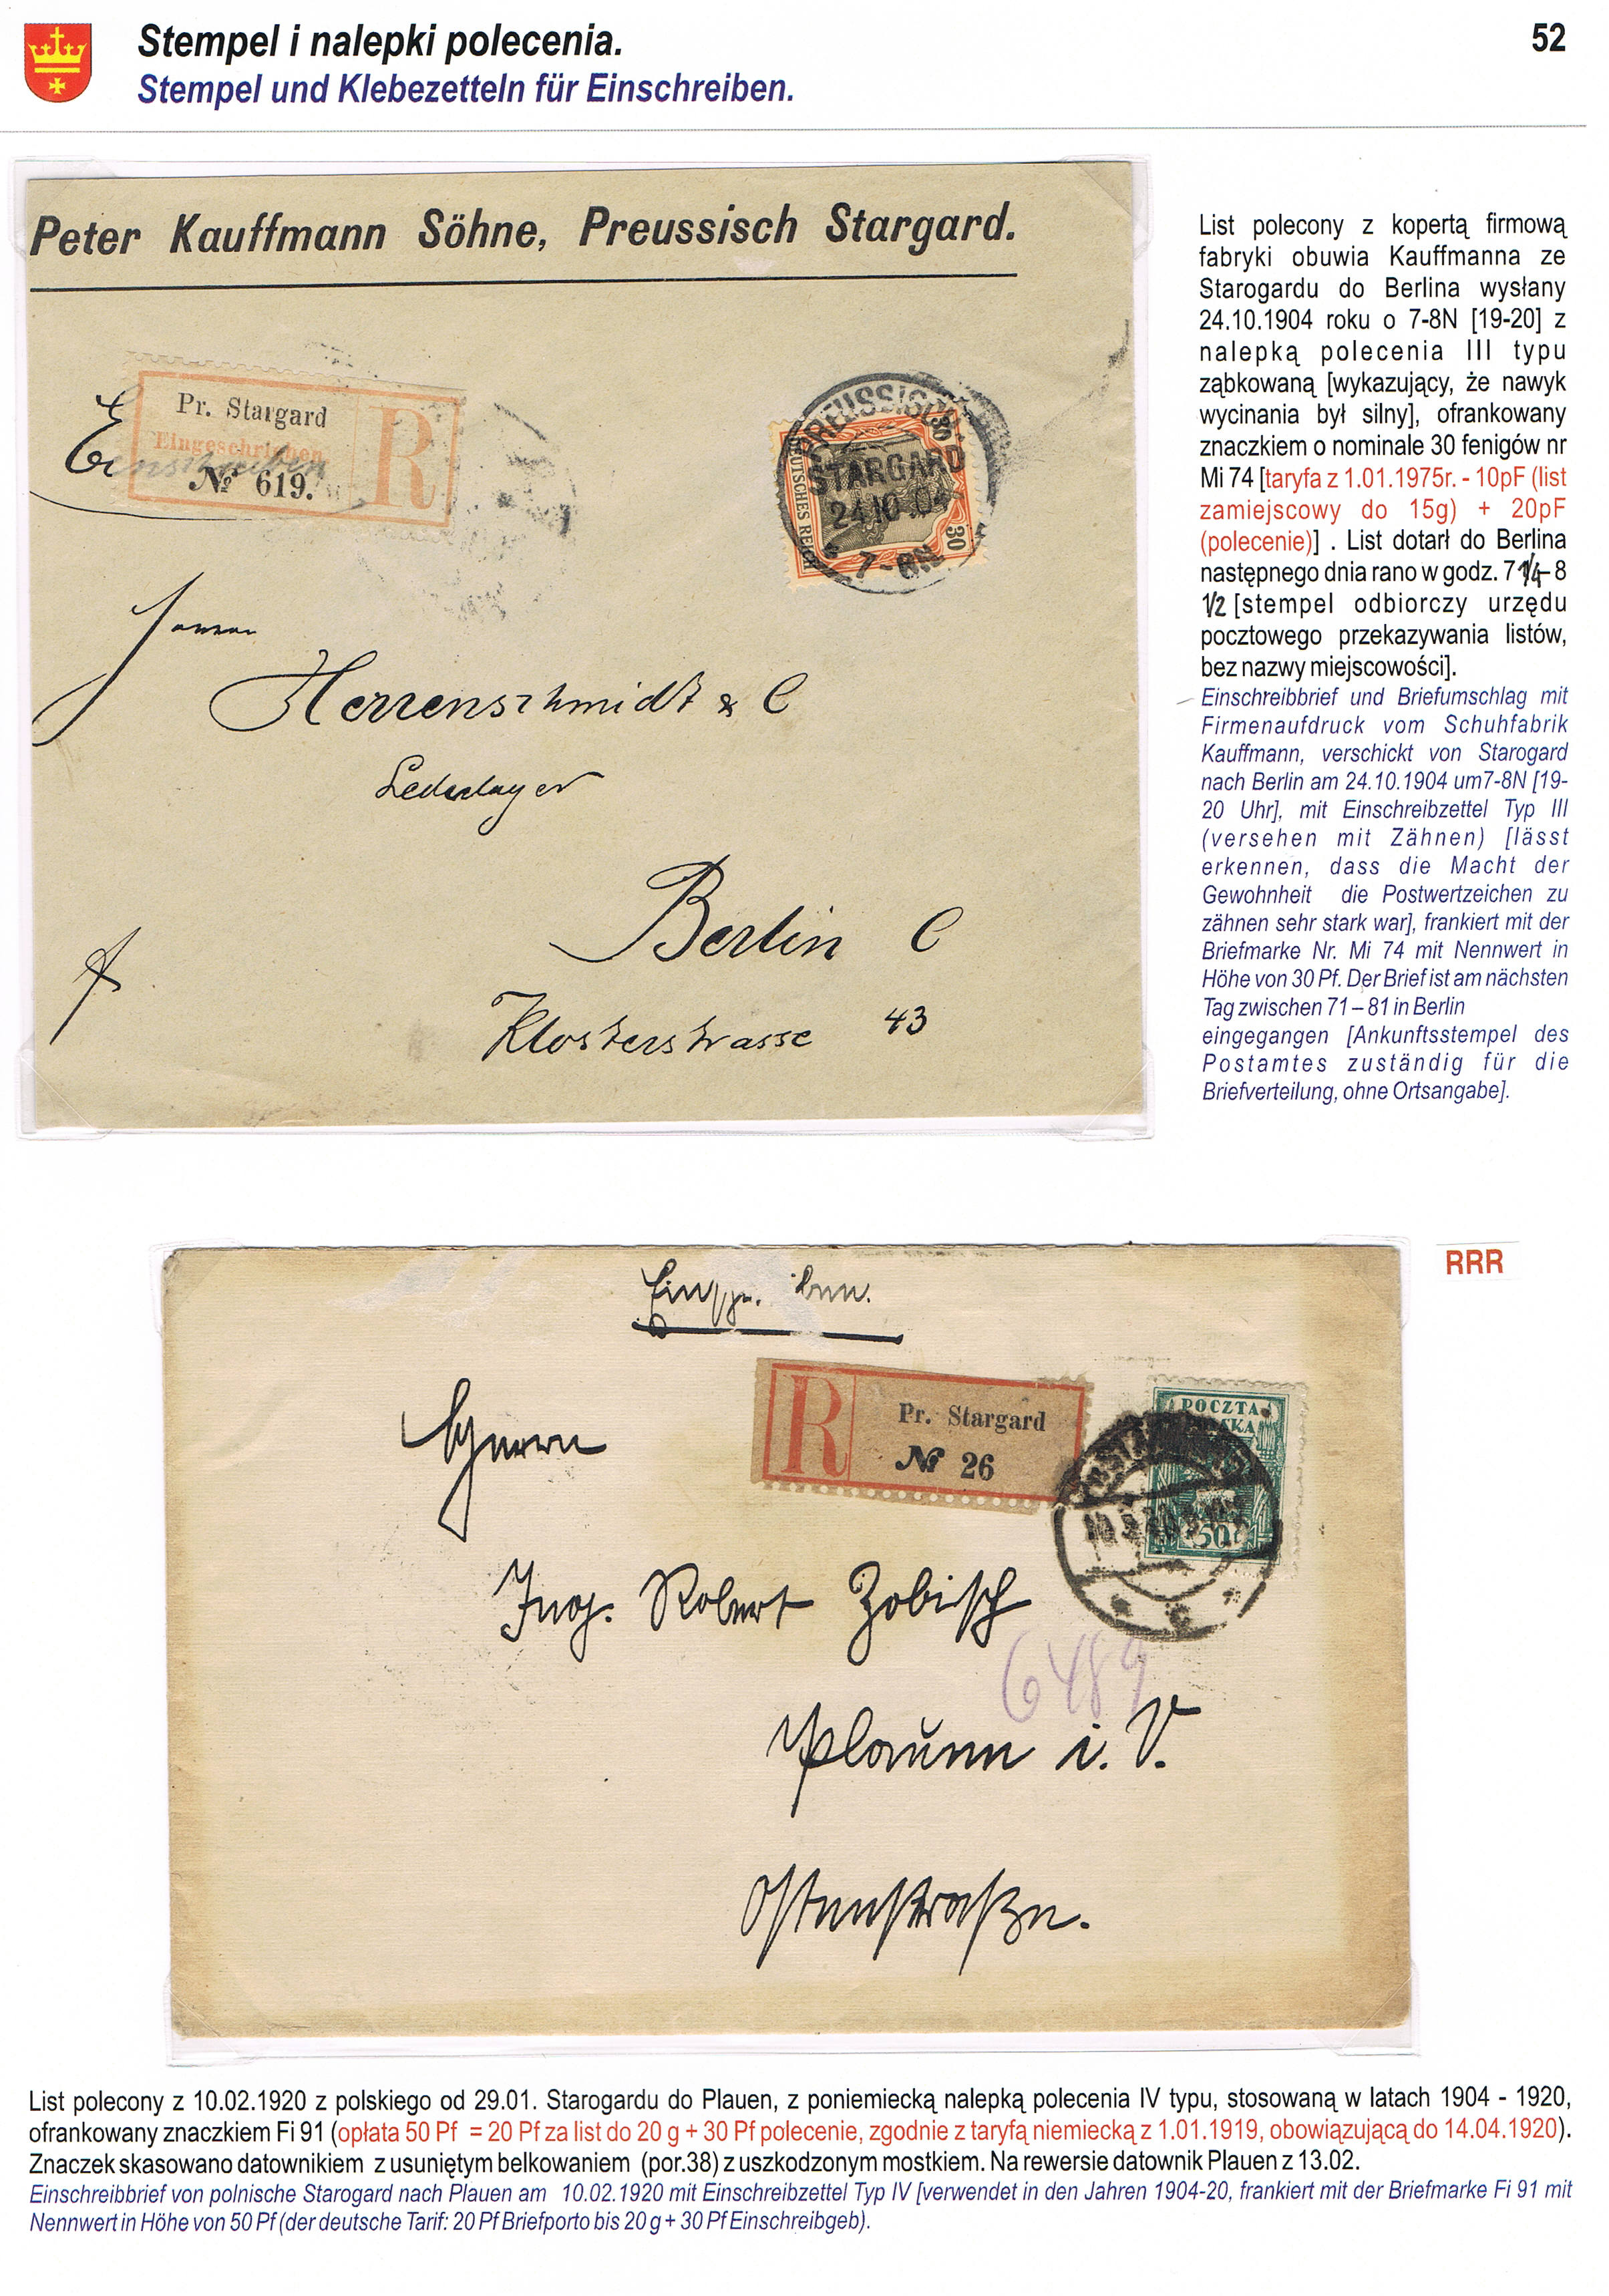 Stempel i nalepki polecenia.
52
Stempel und Klebezetteln für Einschreiben.
Peter Kauffmann Söhne, Preussisch Stargard.
Pr. Stargard
Eingeschrieben
Einschreiben
№ 619.
R
PREUSSISCH
STARGARD
24.10.04
7-8N
DEUTSCHES REICH
30
30
Herrn
Herrenschmidt & C
Lederlager
Berlin C
Klosterstrasse 43
List polecony z kopertą firmową
fabryki obuwia Kauffmanna ze
Starogardu do Berlina wysłany
24.10.1904 roku o 7-8N [19-20] z
nalepką polecenia III typu
ząbkowaną [wykazujący, że nawyk
wycinania był silny], ofrankowany
znaczkiem o nominale 30 fenigów nr
Mi 74 [taryfa z 1.01.1975r. - 10pF (list
zamiejscowy do 15g) + 20pF
(polecenie)] . List dotarł do Berlina
następnego dnia rano w godz. 7 1/4 – 8
1/2 [stempel odbiorczy urzędu
pocztowego przekazywania listów,
bez nazwy miejscowości].
Einschreibbrief und Briefumschlag mit
Firmenaufdruck vom Schuhfabrik
Kauffmann, verschickt von Starogard
nach Berlin am 24.10.1904 um7-8N [19-
20 Uhr], mit Einschreibzettel Typ III
(versehen mit Zähnen) [lässt
erkennen, dass die Macht der
Gewohnheit die Postwertzeichen zu
zähnen sehr stark war], frankiert mit der
Briefmarke Nr. Mi 74 mit Nennwert in
Höhe von 30 Pf. Der Brief ist am nächsten
Tag zwischen 71 – 81 in Berlin
eingegangen [Ankunftsstempel des
Postamtes zuständig für die
Briefverteilung, ohne Ortsangabe].
RRR
R
Pr. Stargard
№ 26
POCZTA
POLSKA
50
Herrn
Ing. Robert Zobisch
6489
Plauen i. V.
Ostenstraße.
List polecony z 10.02.1920 z polskiego od 29.01. Starogardu do Plauen, z poniemiecką nalepką polecenia IV typu, stosowaną w latach 1904 - 1920,
ofrankowany znaczkiem Fi 91 (opłata 50 Pf = 20 Pf za list do 20 g + 30 Pf polecenie, zgodnie z taryfą niemiecką z 1.01.1919, obowiązującą do 14.04.1920).
Znaczek skasowano datownikiem z usuniętym belkowaniem (por.38) z uszkodzonym mostkiem. Na rewersie datownik Plauen z 13.02.
Einschreibbrief von polnische Starogard nach Plauen am 10.02.1920 mit Einschreibzettel Typ IV [verwendet in den Jahren 1904-20, frankiert mit der Briefmarke Fi 91 mit
Nennwert in Höhe von 50 Pf (der deutsche Tarif: 20 Pf Briefporto bis 20 g + 30 Pf Einschreibgeb).